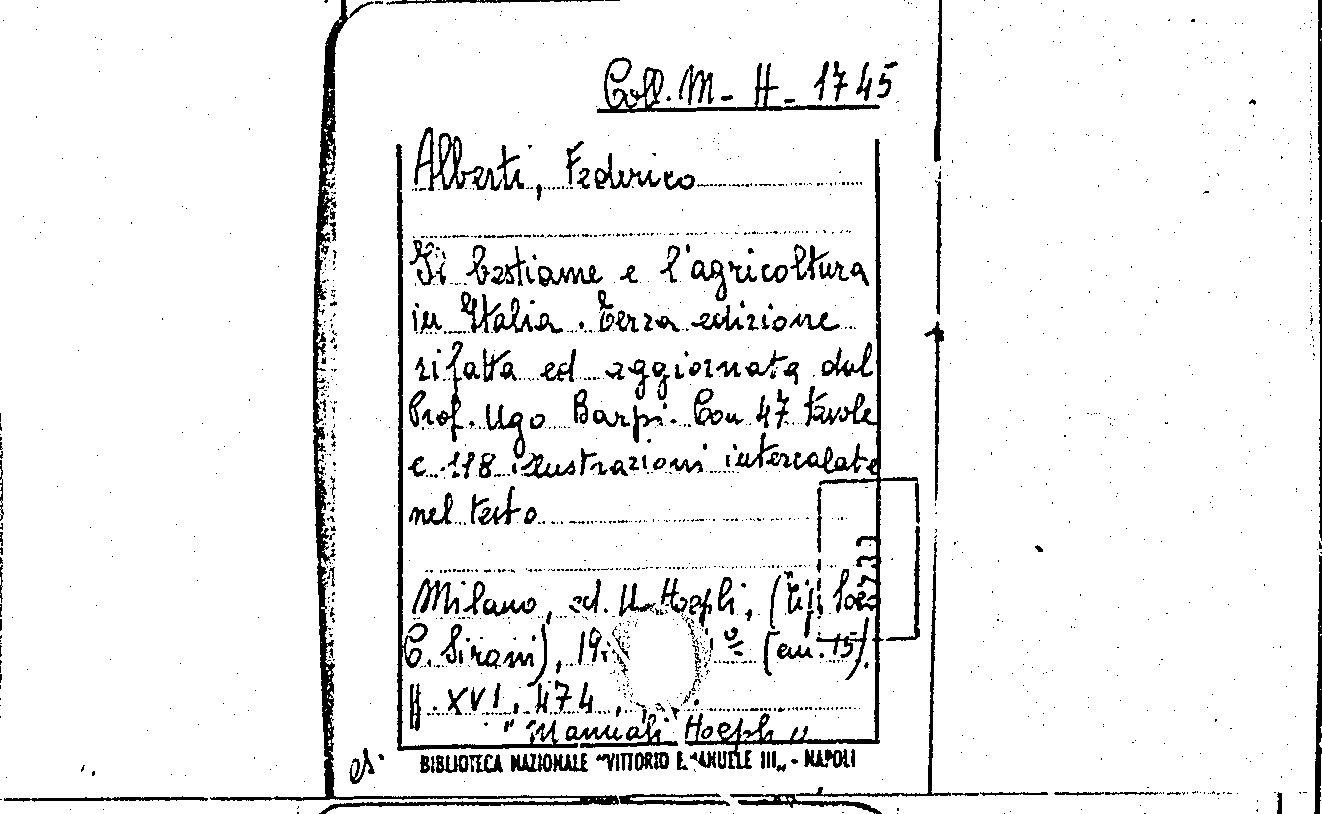 Coll. M - H - 1745
Alberti, Federico
Il bestiame e l'agricoltura
in Italia. Terza edizione
rifatta ed aggiornata dal
Prof. Ugo Barpi. Con 47 tavole
e 118 illustrazioni intercalate
nel testo
Milano, ed. U. Hoepli, (tip.
C. Sirani), 19 (cm. 15).
pp. XVI, 474,
"Manuali Hoepli"
BIBLIOTECA NAZIONALE "VITTORIO E. ANUELE III„ - NAPOLI